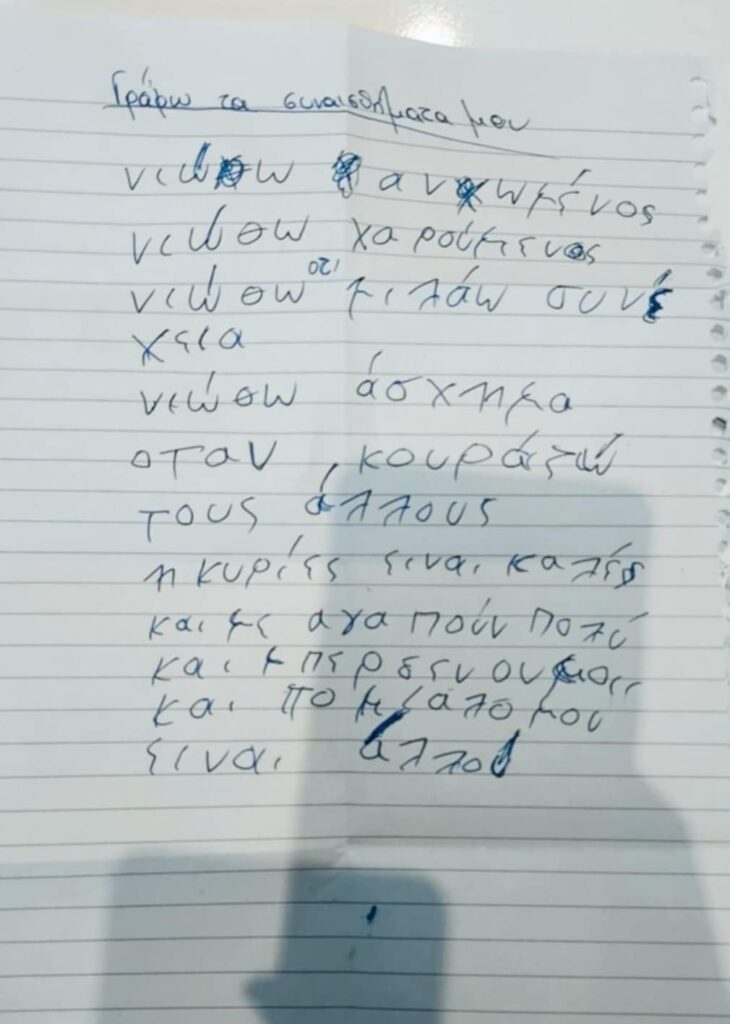 Γράφω τα συναισθηματα μου
νιώθω ανχωμένος
νιώθω χαρούμενος
νιώθω οτι μιλάω συνέ
χεια
νιώθω άσχημα
οταν κουράζω
τους άλλους
η κυρίες είναι καλές
και με αγαπούν πολύ
και μπερδευουμαι
και το μιαλο μου
είναι αλλού